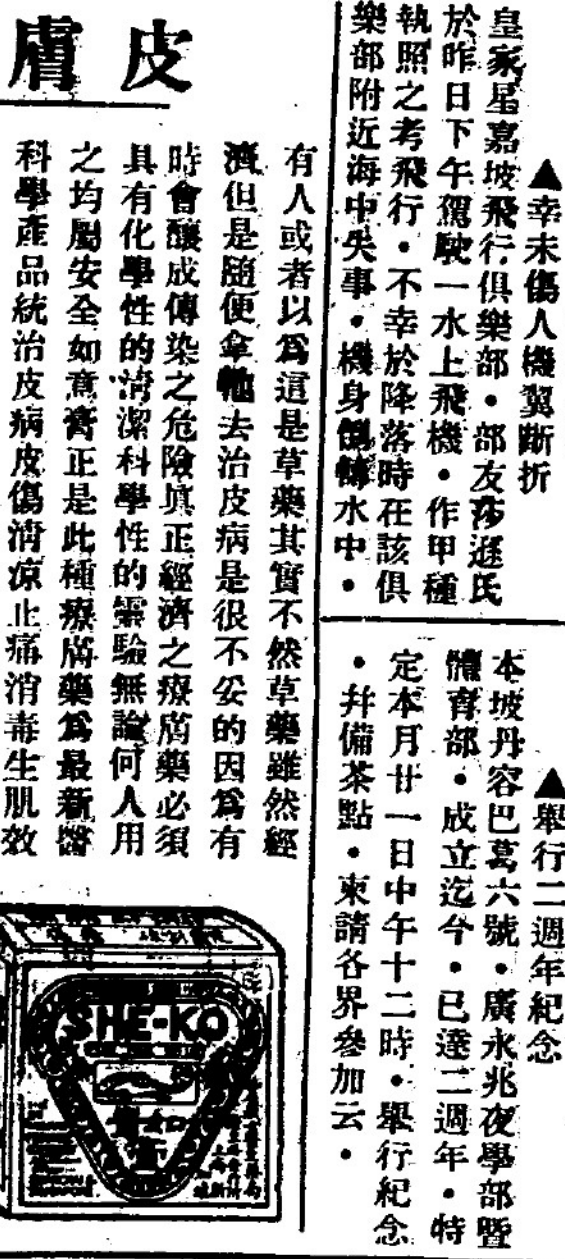 ▲幸未傷人機翼斷折
皇家星嘉坡飛行俱樂部・部友莎遜氏
於昨日下午駕駛一水上飛機・作甲種
執照之考飛行・不幸於降落時在該俱
樂部附近海中失事・機身倒轉水中・
▲舉行二週年紀念
本坡丹容巴葛六號・廣永兆夜學部暨
體育部・成立迄今・已達二週年・特
定本月廿一日中午十二時・舉行紀念
・幷備茶點・柬請各界參加云・
膚皮
有人或者以爲這是草藥其實不然草藥雖然經
濟但是隨便拿牠去治皮病是很不妥的因爲有
時會釀成傳染之危險眞正經濟之療膚藥必須
具有化學性的清潔科學性的靈驗無論何人用
之均屬安全如意膏正是此種療膚藥爲最新醫
科學產品統治皮病皮傷清凉止痛消毒生肌效
SHE-KO
如意膏